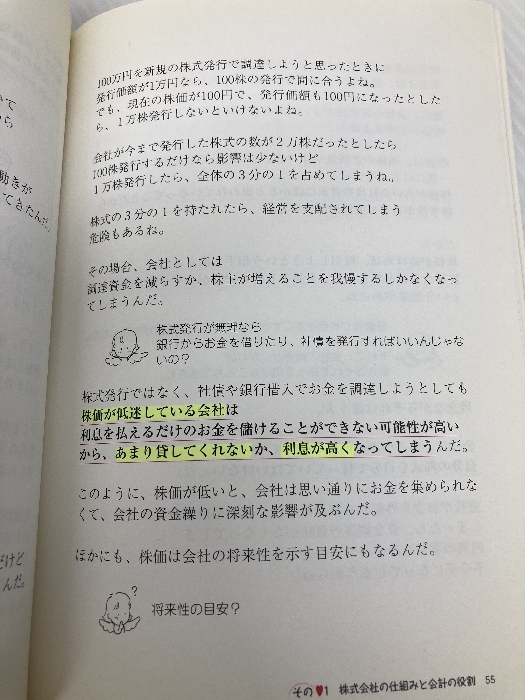 いて
から
動きが
てきたんだ。
だけど
んだ。
100万円を新規の株式発行で調達しようと思ったときに
発行価額が1万円なら、100株の発行で間に合うよね。
でも、現在の株価が100円で、発行価額も100円になったとした
ら、1万株発行しないといけないよね。
会社が今まで発行した株式の数が2万株だったとしたら
100株発行するだけなら影響は少ないけど
1万株発行したら、全体の3分の1を占めてしまうね。
株式の3分の1を持たれたら、経営を支配されてしまう
危険もあるね。
その場合、会社としては
調達資金を減らすか、株主が増えることを我慢するしかなくなっ
てしまうんだ。
株式発行が無理なら
銀行からお金を借りたり、社債を発行すればいいんじゃな
いの?
株式発行ではなく、社債や銀行借入でお金を調達しようとしても
株価が低迷している会社は
利息を払えるだけのお金を儲けることができない可能性が高い
から、あまり貸してくれないか、利息が高くなってしまうんだ。
このように、株価が低いと、会社は思い通りにお金を集められな
くて、会社の資金繰りに深刻な影響が及ぶんだ。
ほかにも、株価は会社の将来性を示す目安にもなるんだ。
?
将来性の目安?
その♥1 株式会社の仕組みと会計の役割 55